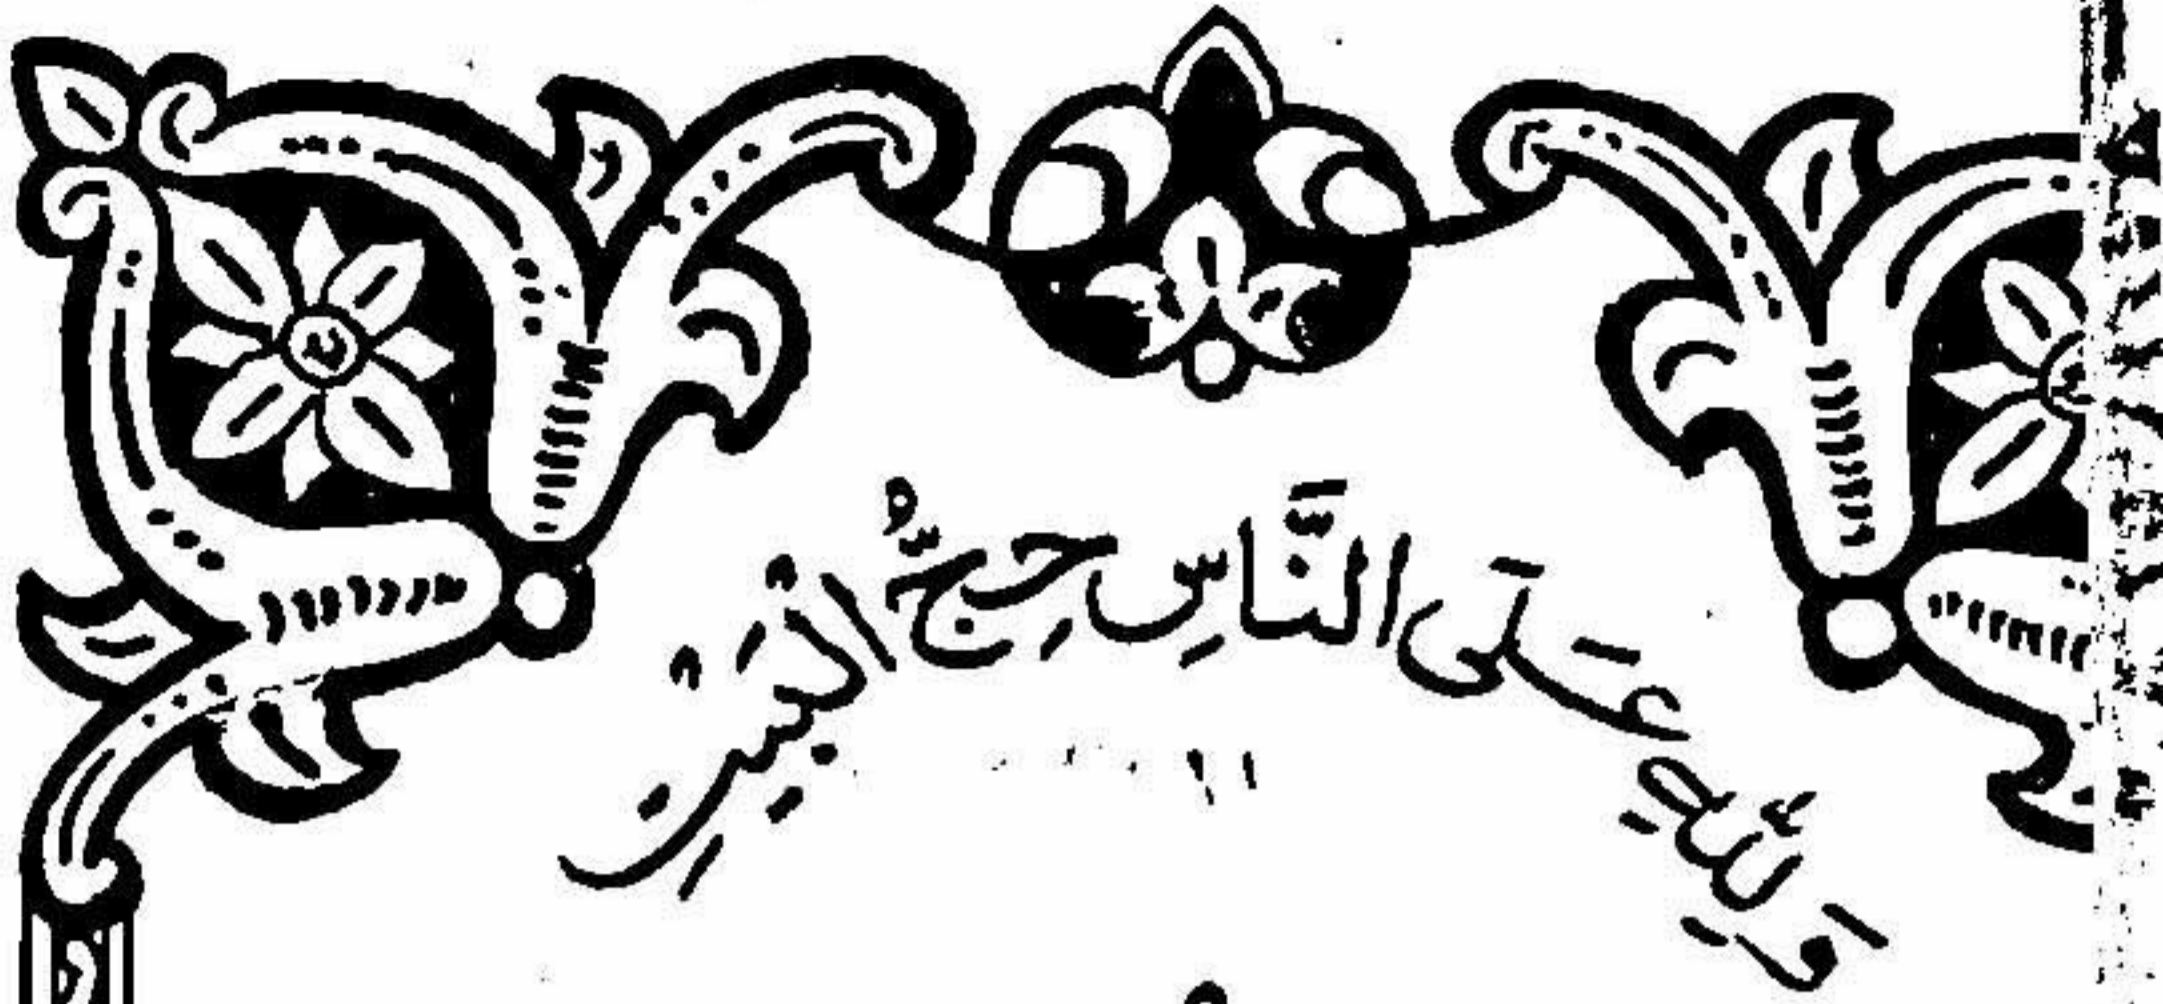 وَلِلّٰهِ عَلَى النَّاسِ حِجُّ الْبَيْتِ